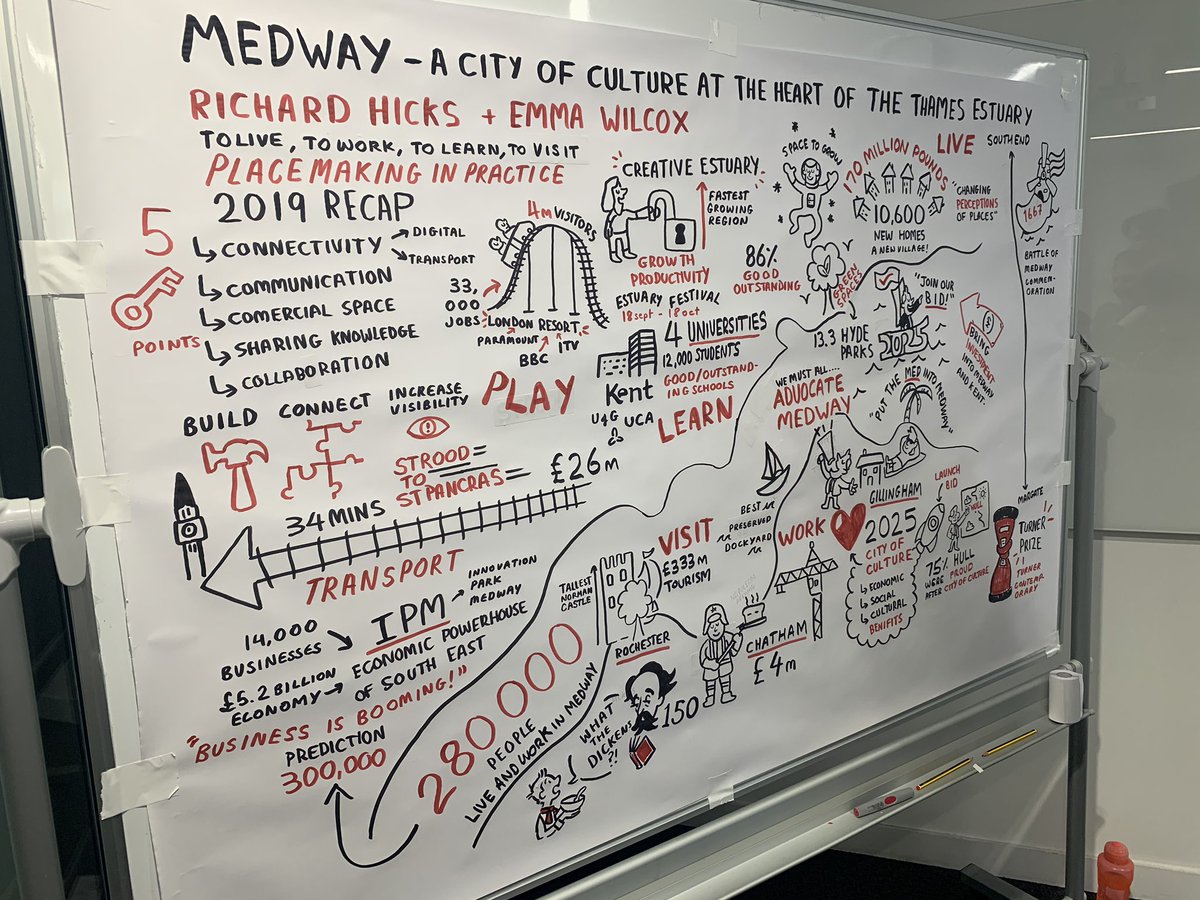 MEDWAY - A CITY OF CULTURE AT THE HEART OF THE THAMES ESTUARY
RICHARD HICKS + EMMA WILCOX
TO LIVE, TO WORK, TO LEARN, TO VISIT
PLACEMAKING IN PRACTICE
2019 RECAP
5
POINTS
CONNECTIVITY
DIGITAL
TRANSPORT
COMMUNICATION
COMERCIAL SPACE
SHARING KNOWLEDGE
COLLABORATION
BUILD
CONNECT
INCREASE
VISIBILITY
4m VISITORS
33,
000
JOBS
LONDON RESORT
PARAMOUNT
BBC
ITV
PLAY
CREATIVE ESTUARY
FASTEST
GROWING
REGION
GROWTH
PRODUCTIVITY
ESTUARY FESTIVAL
18 sept - 18 oct
4 UNIVERSITIES
12,000 STUDENTS
Kent
UCA
GOOD/OUTSTAND-
ING SCHOOLS
LEARN
86%
GOOD
OUTSTANDING
SPACE TO GROW
170 MILLION POUNDS
LIVE
10,600
NEW HOMES
A NEW VILLAGE!
"CHANGING
PERCEPTIONS
OF PLACES"
SOUTHEND
1667
BATTLE OF
MEDWAY
COMMEM-
ORATION
GREEN
SPACES
13.3 HYDE
PARKS
"JOIN OUR
BID!"
2025
BRING
INVESTMENT
INTO MEDWAY
AND KENT.
WE MUST ALL....
ADVOCATE
MEDWAY
"PUT THE MED INTO MEDWAY"
STROOD
TO
ST PANCRAS
£26m
34 MINS
TRANSPORT
14,000
BUSINESSES
IPM
INNOVATION
PARK
MEDWAY
£5.2 BILLION
ECONOMY
ECONOMIC POWERHOUSE
OF SOUTH EAST
"BUSINESS IS BOOMING!"
PREDICTION
300,000
280000
PEOPLE
LIVE AND WORK IN MEDWAY
TALLEST
NORMAN
CASTLE
ROCHESTER
VISIT
£333m
TOURISM
BEST
PRESERVED
DOCKYARD
WHAT
THE
DICKENS
?!
150
WORK
CHATHAM
£4m
GILLINGHAM
2025
CITY OF
CULTURE
ECONOMIC
SOCIAL
CULTURAL
BENEFITS
LAUNCH
BID
HULL
75% HULL
WERE PROUD
AFTER CITY OF CULTURE
MARGATE
TURNER
PRIZE
TURNER
CONTEMP-
ORARY